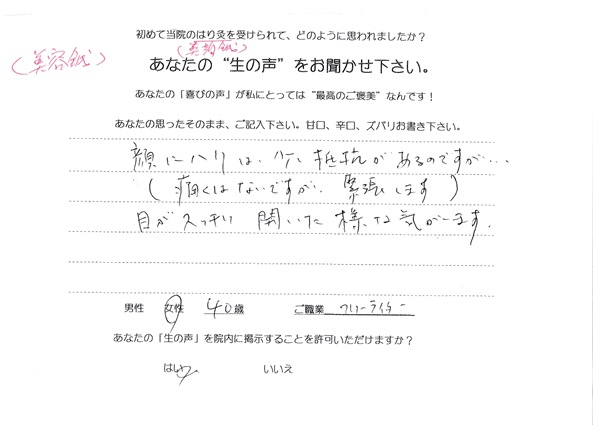 初めて当院のはり灸を受けられて、どのように思われましたか？
(美容鍼)
(美顔鍼)
あなたの“生の声”をお聞かせ下さい。
あなたの「喜びの声」が私にとっては“最高のご褒美”なんです！
あなたの思ったそのまま、ご記入下さい。甘口、辛口、ズバリお書き下さい。
顔にハリは、少々抵抗があるのですが…
(痛くはないですが、緊張します)
目がスッキリ開いた様な気がします。
男性 女性 40歳 ご職業 フリーライター
あなたの「生の声」を院内に掲示することを許可いただけますか？
はい いいえ